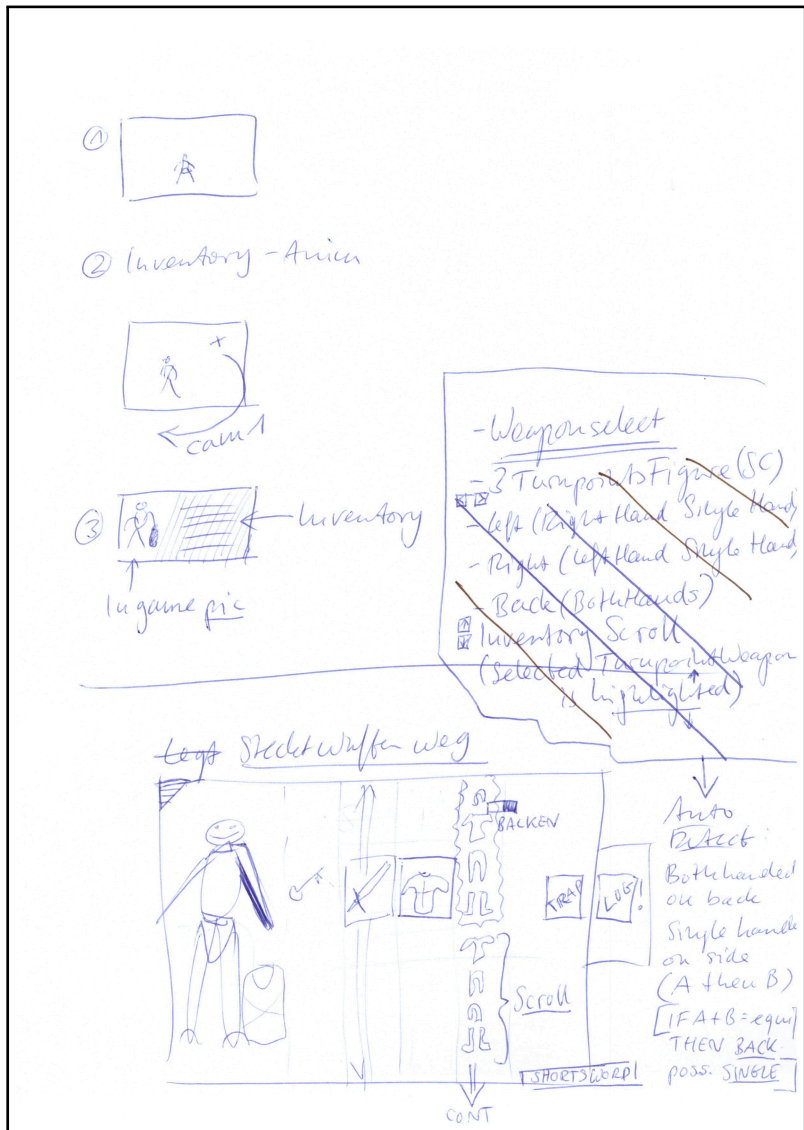 ①
② Inventory - Anim
cam 1
③
Inventory
Ingame pic
- Weaponselect
- 3 Turnpoints Figure (SC)
- Left (Right Hand Single Hand)
- Right (Left Hand Single Hand)
- Back (Both Hands)
Inventory Scroll
(Selected Turnpoint Weapon
is highlighted)
Legt Steckt Waffen weg
BALKEN
TRAP
LOG!
Scroll
SHORTSWORD
CONT
Auto
Both handed
on back
Single handed
on side
(A then B)
[IF A+B = equi]
THEN BACK
poss. SINGLE]